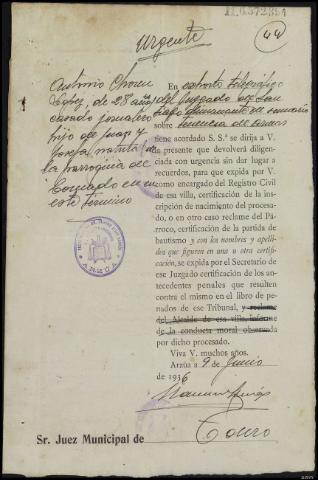 (44)
Urgente
Antonio
Lopez, de 28 años,
casado jornalero
hijo de Juan y
Josefa natural de
la parroquia de
en
este termino
En exhorto telegráfico
del Juzgado de
sumario
sobre tenencia de armas
tiene acordado S. S.ª se dirija a V.
la presente que devolverá diligencia-
da con urgencia sin dar lugar a re-
cuerdos, para que expida por V.
como encargado del Registro Civil
de esa villa, certificación de la ins-
cripción de nacimiento del procesa-
do, o en otro caso reclame del Pá-
rroco, certificación de la partida de
bautismo y con los nombres y apelli-
dos que figuren en una u otra certifi-
cación, se expida por el Secretario de
ese Juzgado certificación de los an-
tecedentes penales que resulten
contra el mismo en el libro de pe-
nados de ese Tribunal, y reclame
del Alcalde de esa villa, informe
de la conducta moral observada
por dicho procesado.
Viva V. muchos años.
Arzúa 9 de Junio
de 1936
Sr. Juez Municipal de Touro